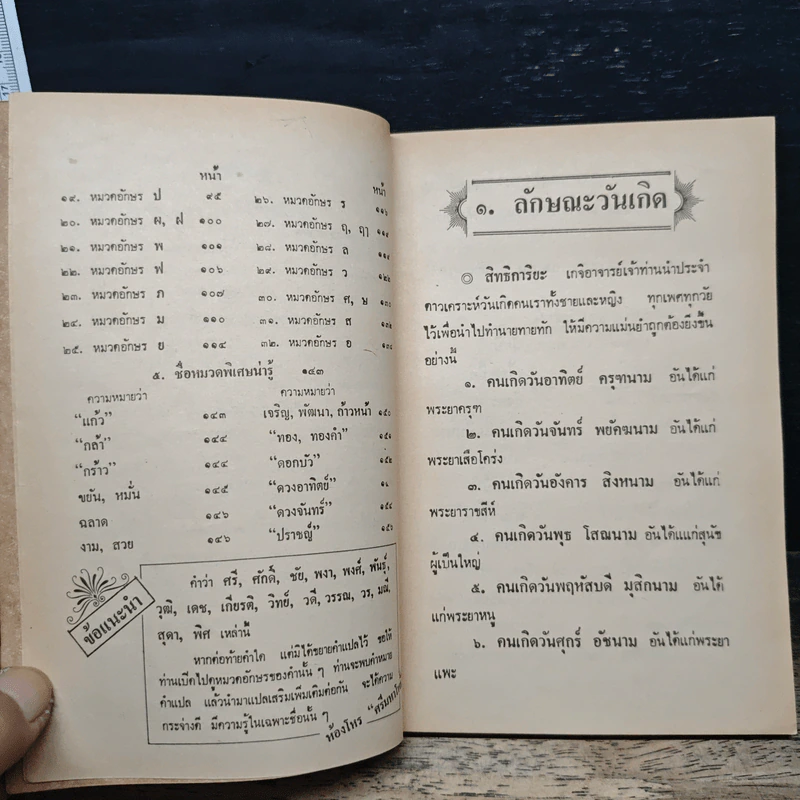 หน้า
๑๙. หมวดอักษร ป ๙๕
๒๐. หมวดอักษร ผ, ฝ ๑๐๐
๒๑. หมวดอักษร พ ๑๐๑
๒๒. หมวดอักษร ฟ ๑๐๖
๒๓. หมวดอักษร ภ ๑๐๗
๒๔. หมวดอักษร ม ๑๑๐
๒๕. หมวดอักษร ย ๑๑๔
หน้า
๒๖. หมวดอักษร ร ๑๑๖
๒๗. หมวดอักษร ฤ, ฤๅ ๑๑๙
๒๘. หมวดอักษร ล ๑๑๙
๒๙. หมวดอักษร ว ๑๒๒
๓๐. หมวดอักษร ศ, ษ ๑๓๐
๓๑. หมวดอักษร ส ๑๓๒
๓๒. หมวดอักษร อ ๑๓๘
๕. ชื่อหมวดพิเศษน่ารู้ ๑๔๓
ความหมายว่า
"แก้ว" ๑๔๓
"กล้า" ๑๔๔
"กร้าว" ๑๔๔
ขยัน, หมั่น ๑๔๕
ฉลาด ๑๔๖
งาม, สวย ๑๔๖
ความหมายว่า
เจริญ, พัฒนา, ก้าวหน้า ๑๕๐
"ทอง, ทองคำ" ๑๕๑
"ดอกบัว" ๑๕๒
"ดวงอาทิตย์"
"ดวงจันทร์" ๑๕๔
"ปราชญ์" ๑๕๖
ข้อแนะนำ
คำว่า ศรี, ศักดิ์, ชัย, พงา, พงศ์, พันธุ์,
วุฒิ, เดช, เกียรติ, วิทย์, วดี, วรรณ, วร, มณี,
สุดา, พิศ เหล่านี้
หากต่อท้ายคำใด แต่มิได้ขยายคำแปลไว้ ขอให้
ท่านเปิดไปดูหมวดอักษรของคำนั้น ๆ ท่านจะพบคำหมาย
คำแปล แล้วนำมาแปลเสริมเพิ่มเติมต่อกัน จะได้ความ
กระจ่างดี มีความรู้ในเฉพาะชื่อนั้น ๆ
ห้องโหร
๑. ลักษณะวันเกิด
◎ สิทธิการิยะ เกจิอาจารย์เจ้าท่านนำประจำ
ดาวเคราะห์วันเกิดคนเราทั้งชายและหญิง ทุกเพศทุกวัย
ไว้เพื่อนำไปทำนายทายทัก ให้มีความแม่นยำถูกต้องยิ่งขึ้น
อย่างนี้
๑. คนเกิดวันอาทิตย์ ครุฑนาม อันได้แก่
พระยาครุฑ
๒. คนเกิดวันจันทร์ พยัคฆนาม อันได้แก่
พระยาเสือโคร่ง
๓. คนเกิดวันอังคาร สิงหนาม อันได้แก่
พระยาราชสีห์
๔. คนเกิดวันพุธ โสณนาม อันได้แแก่สุนัข
ผู้เป็นใหญ่
๕. คนเกิดวันพฤหัสบดี มุสิกนาม อันได้
แก่พระยาหนู
๖. คนเกิดวันศุกร์ อัชนาม อันได้แก่พระยา
แพะ